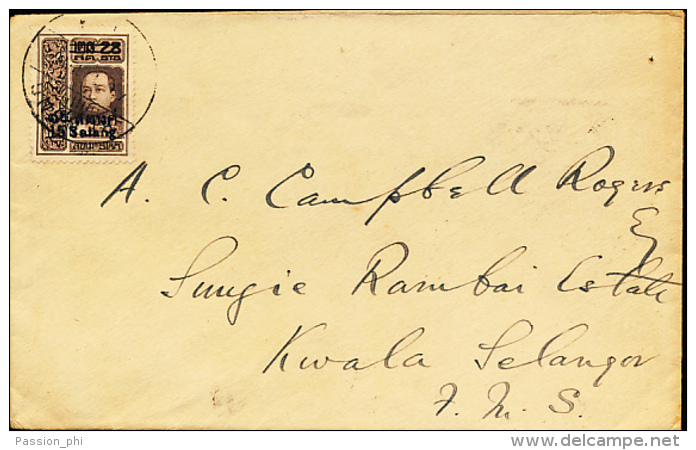 28
15 Satang
A. C. Campbell Rogers
Esq
Sungie Rambai Estate
Kwala Selangor
F. M. S.
Passion_phi
delcampe.net